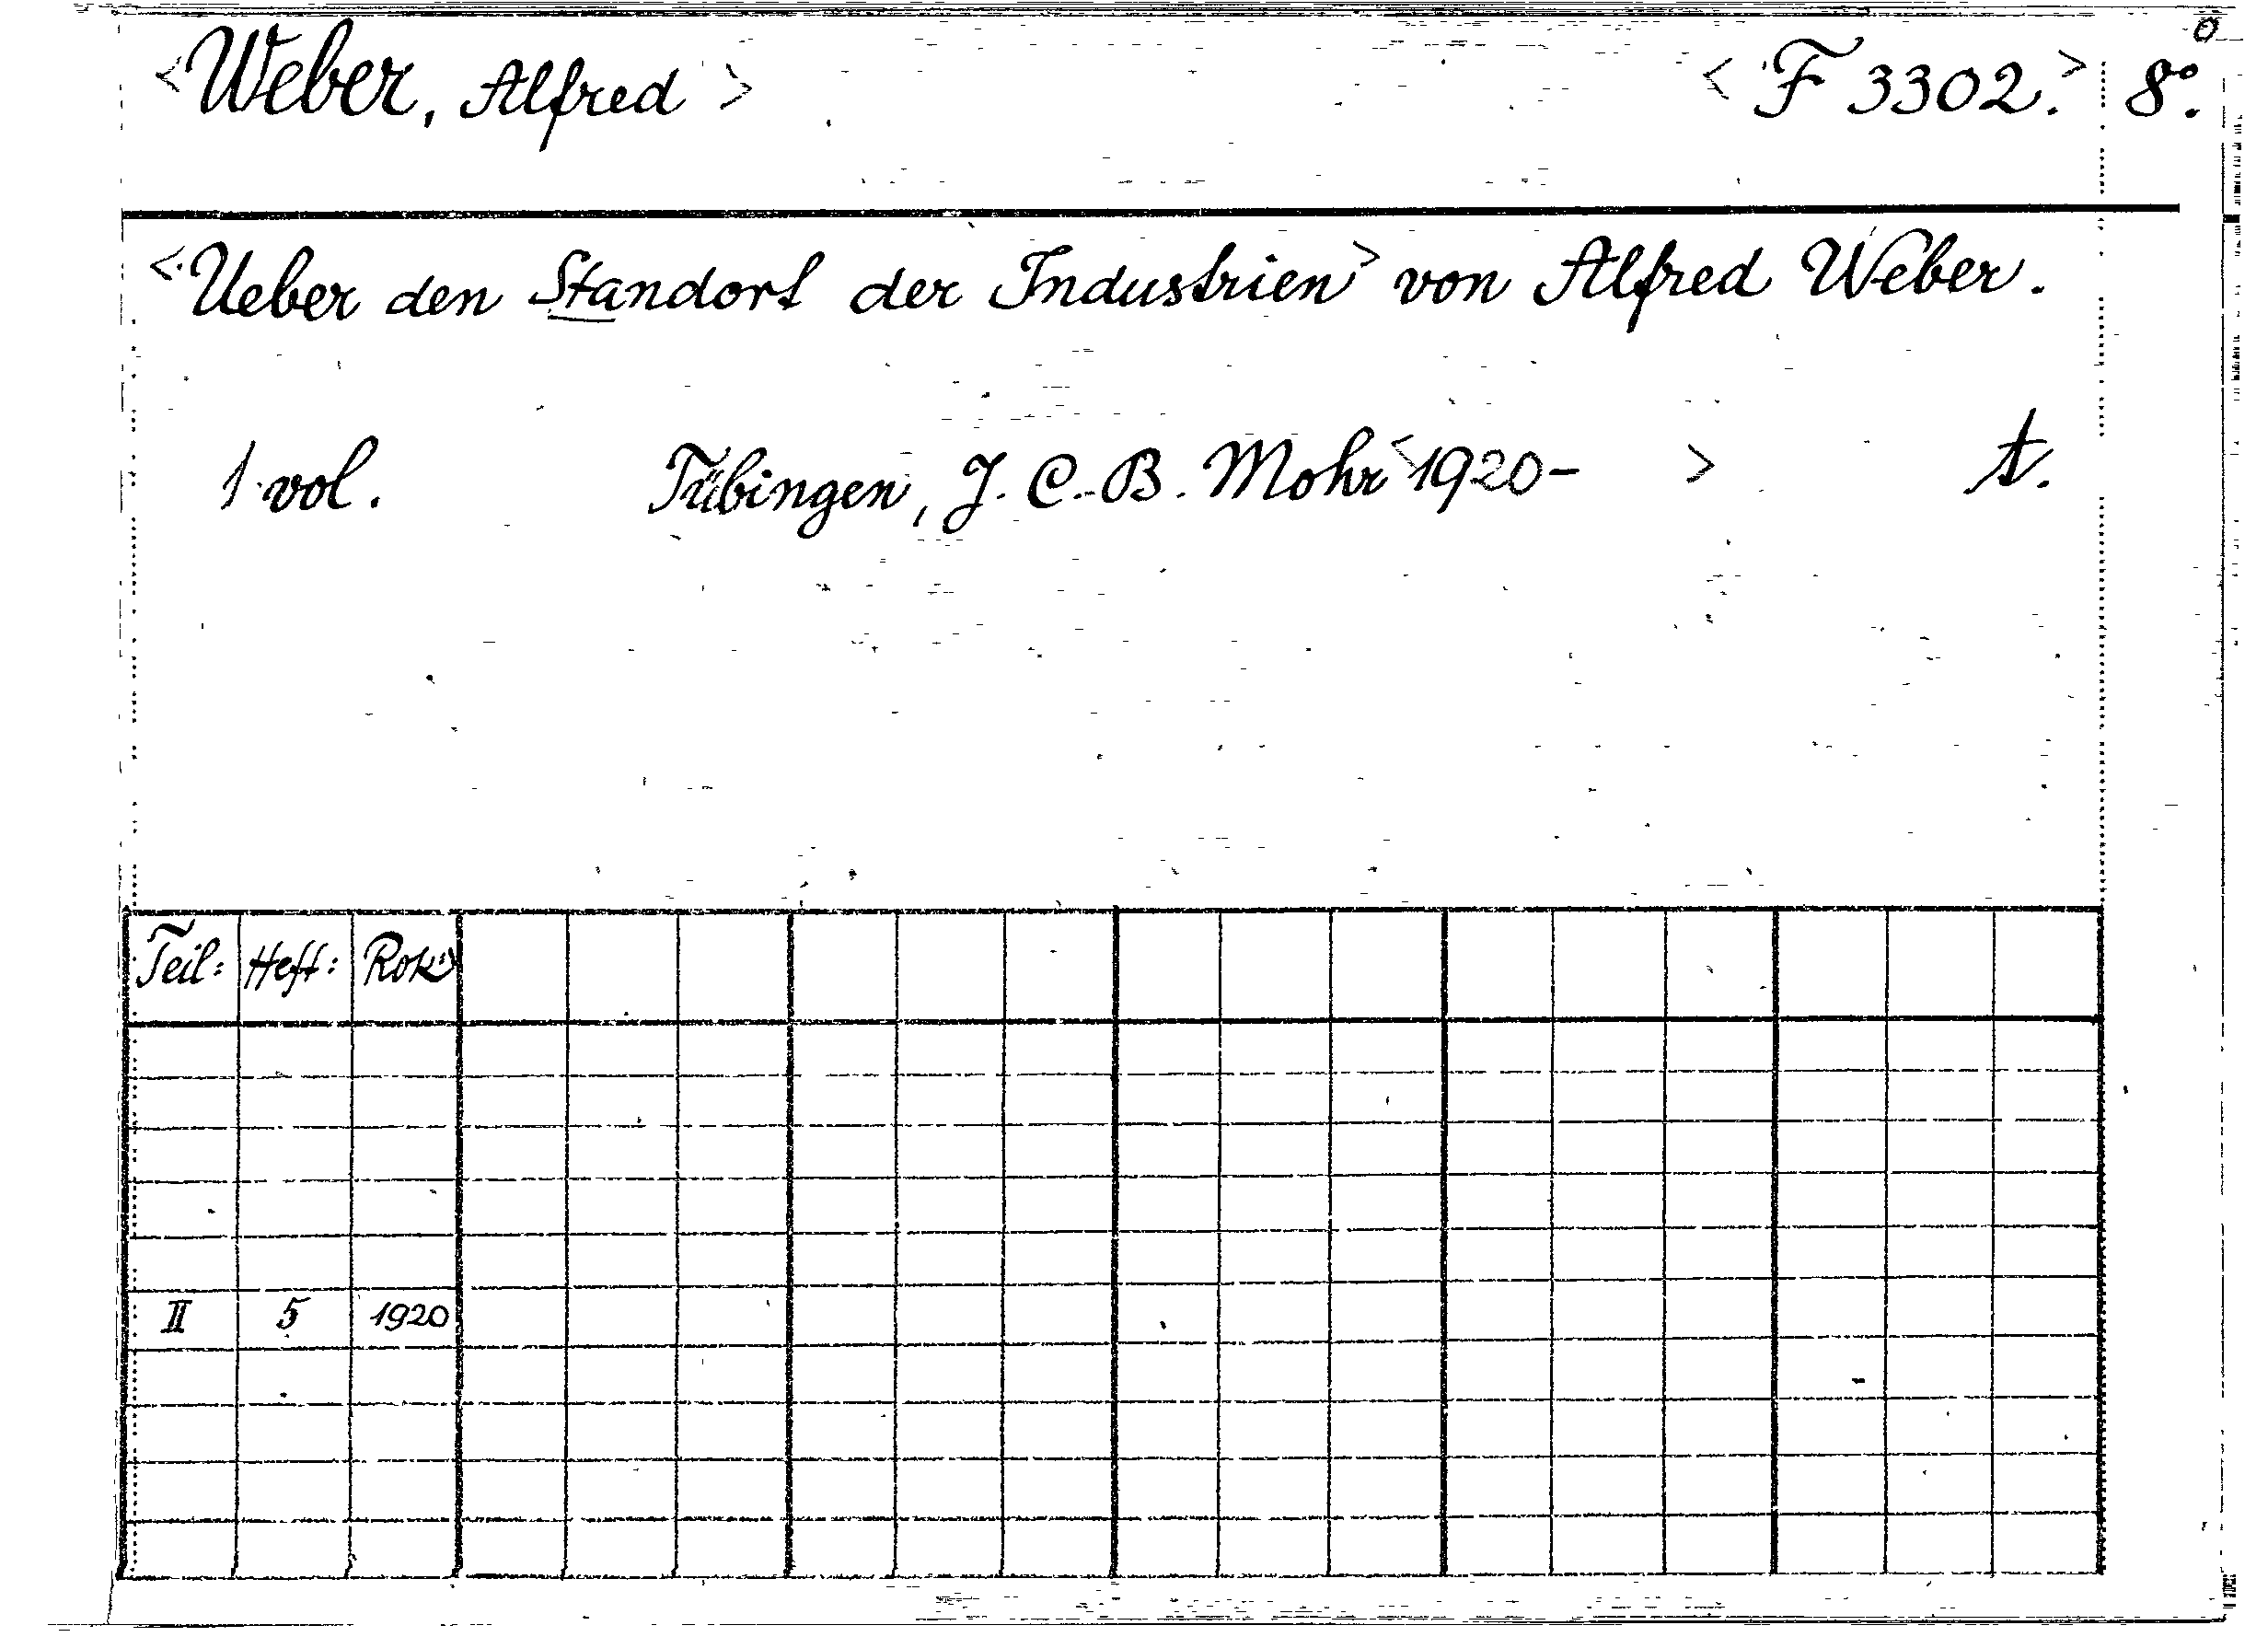 <Weber, Alfred> <F 3302.> 8°.
<Ueber den Standort der Industrien> von Alfred Weber.
1 vol. Tübingen, J. C. B. Mohr <1920- > t.
Teil: Heft: Rok:
II 5 1920